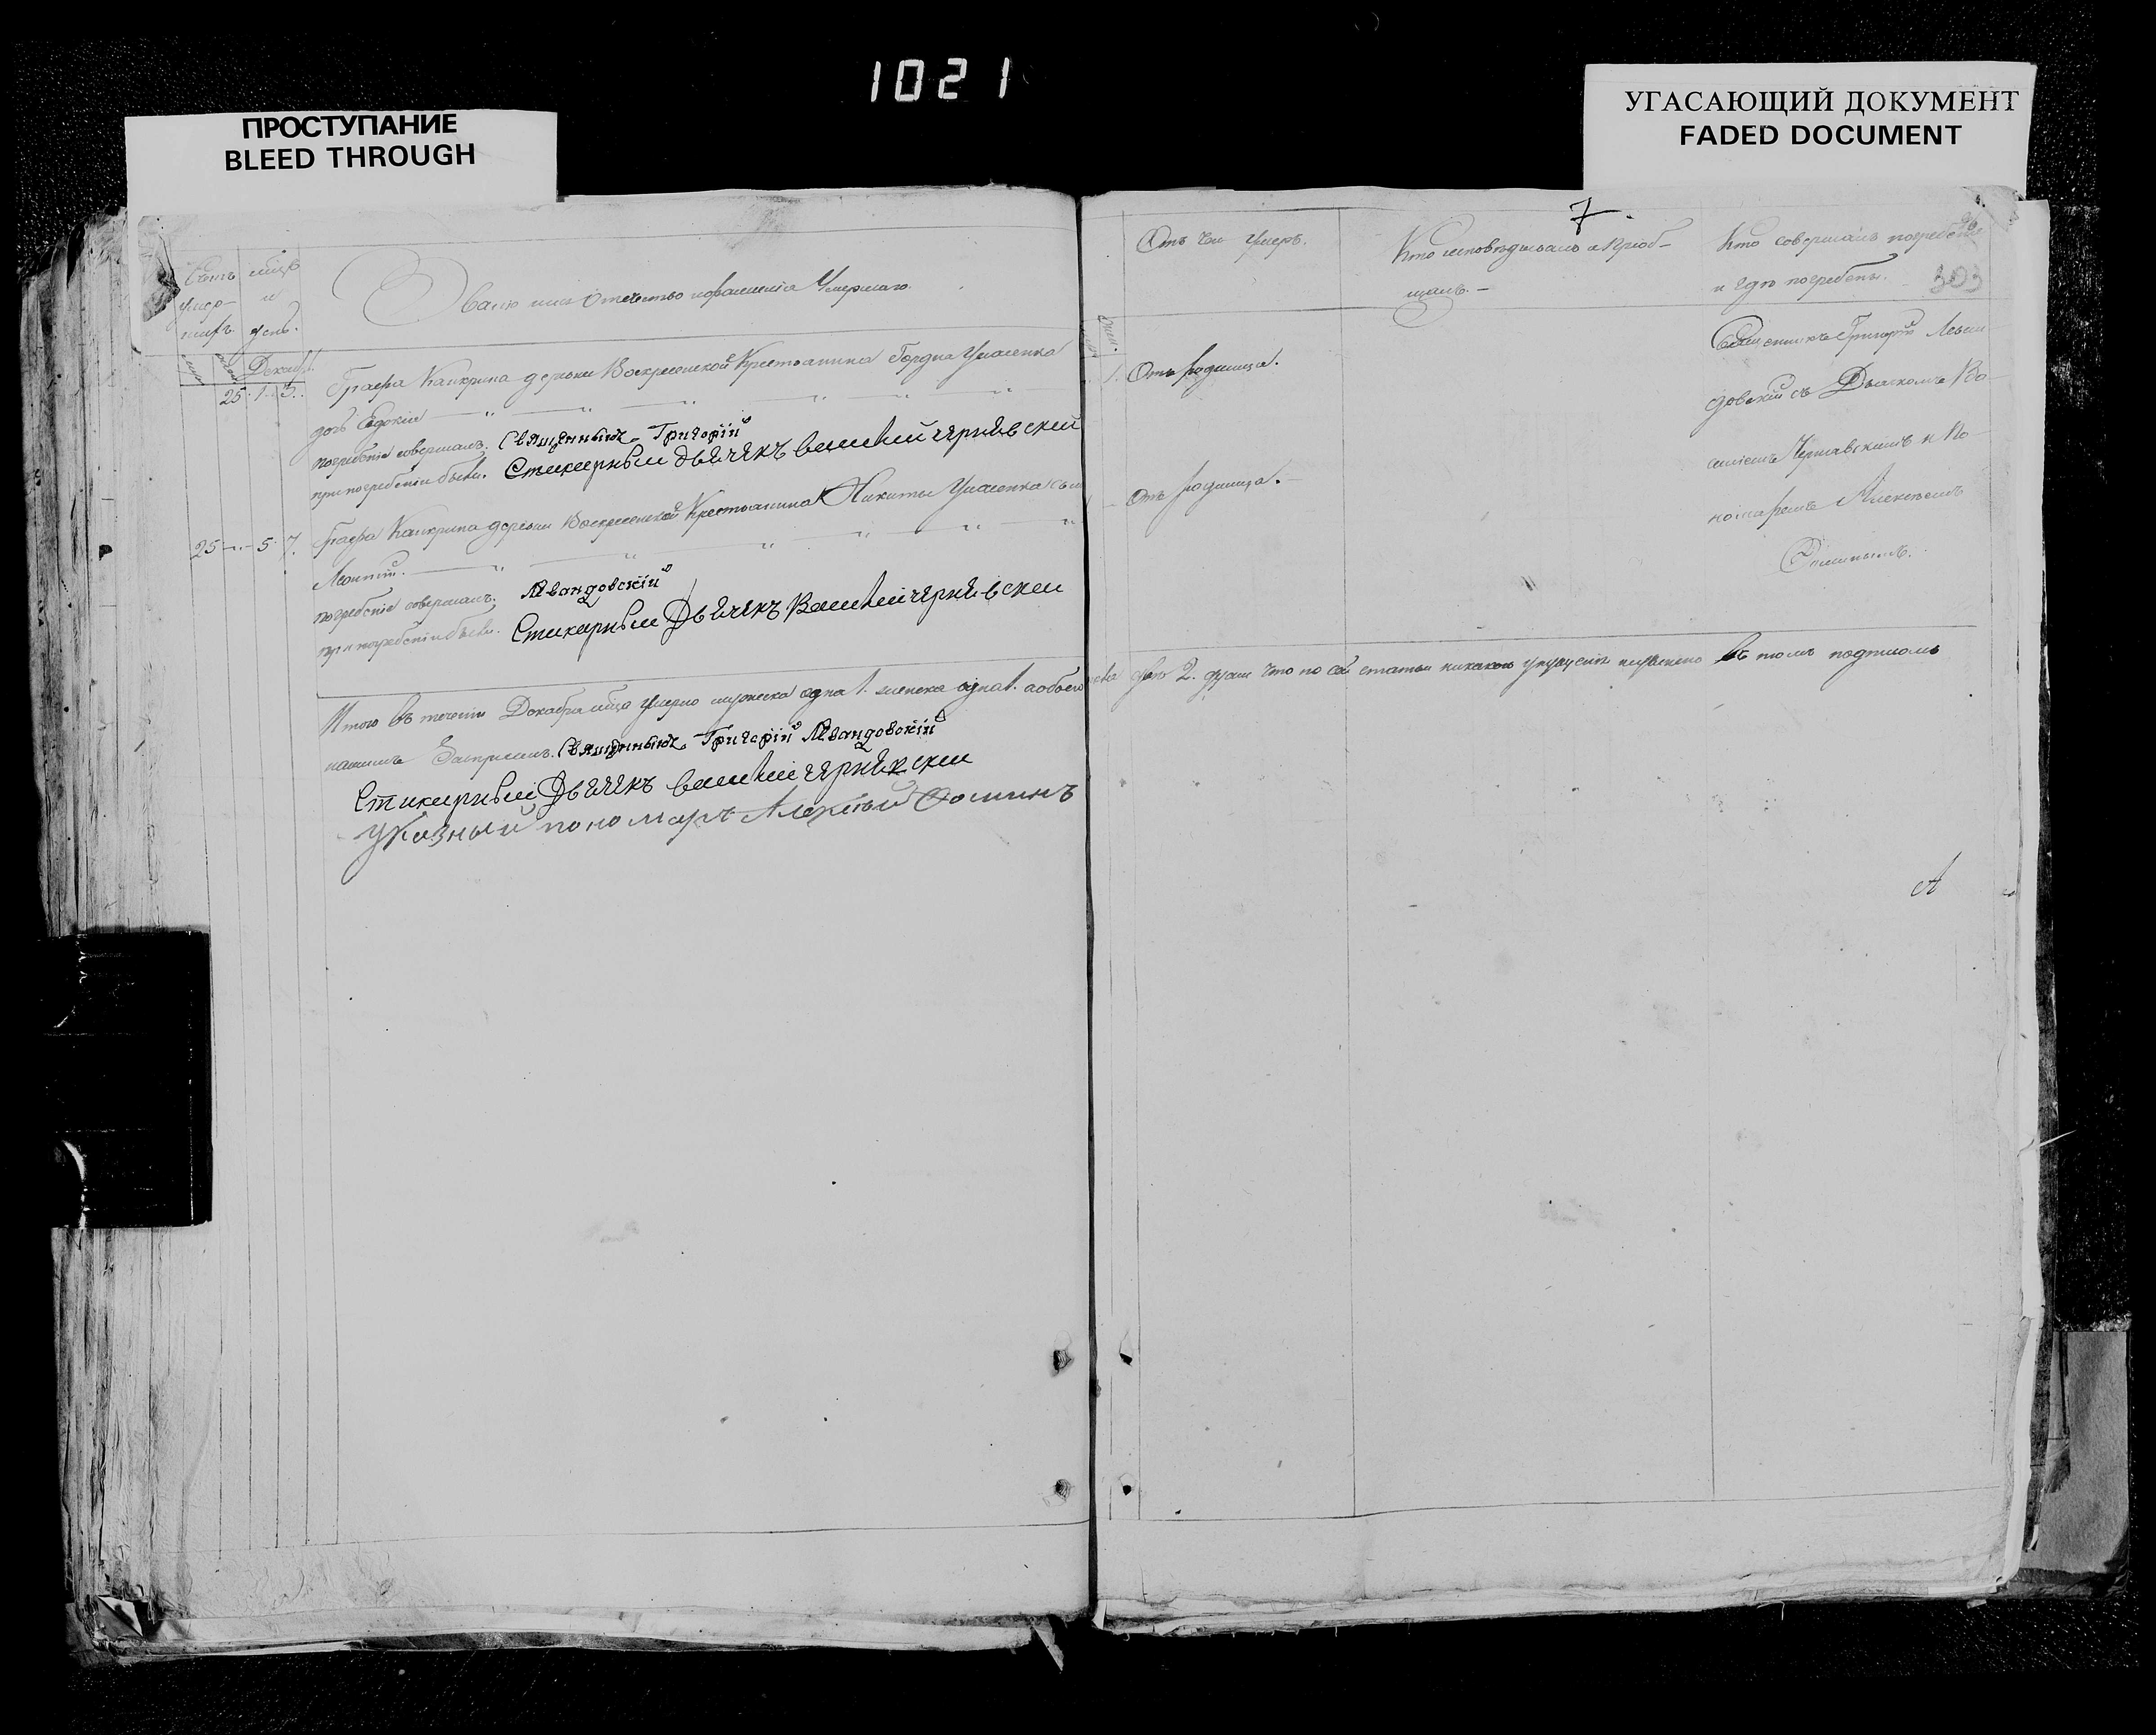 1021
ПРОСТУПАНИЕ
BLEED THROUGH
УГАСАЮЩИЙ ДОКУМЕНТ
FADED DOCUMENT
Счетъ умер-
мцъ и день.
Званіе имя Отечество ифамилія Умершаго.
Декаб.
25. 1. 3.
Графа Канкрина деревни Воскресенской Крестьянина Гордѣа Ушаенка
дочь Евдокія
погребеніе совершалъ. Священникъ Григорій
при погребеніи были. Стихарный Дьячекъ Василий чернявский
25 5 7.
Графа Канкрина деревни Воскресенской Крестьянина Никиты Ушаенка сынъ
Леонтій.
погребеніе совершалъ. Левандовскій
при погребеніи были. Стихарный Дьячекъ Василий чернявский
Итого въ теченіи Декабря мца умерло мужеска одна 1. женска одна 1. а обоего
Священникъ Григорій Левандовскій
Стихарный Дьячекъ василий чернявский
указный пономарь Алексѣй Фоминъ
7.
303
Отъ чего умеръ.
Кто исповѣдывалъ и пріоб-
щалъ.
Кто совершалъ погребеніе
и гдѣ погребены.
1. Отъ родимца.
Отъ родимца.
Священникъ Григорій Леван-
довскій съ Дьячкомъ Ва-
силіемъ Чернявскимъ и По-
номаремъ Алексѣемъ
Фоминымъ.
двѣ 2. души что по сей статьи никакого упущенія неучинено въ томъ подписомъ